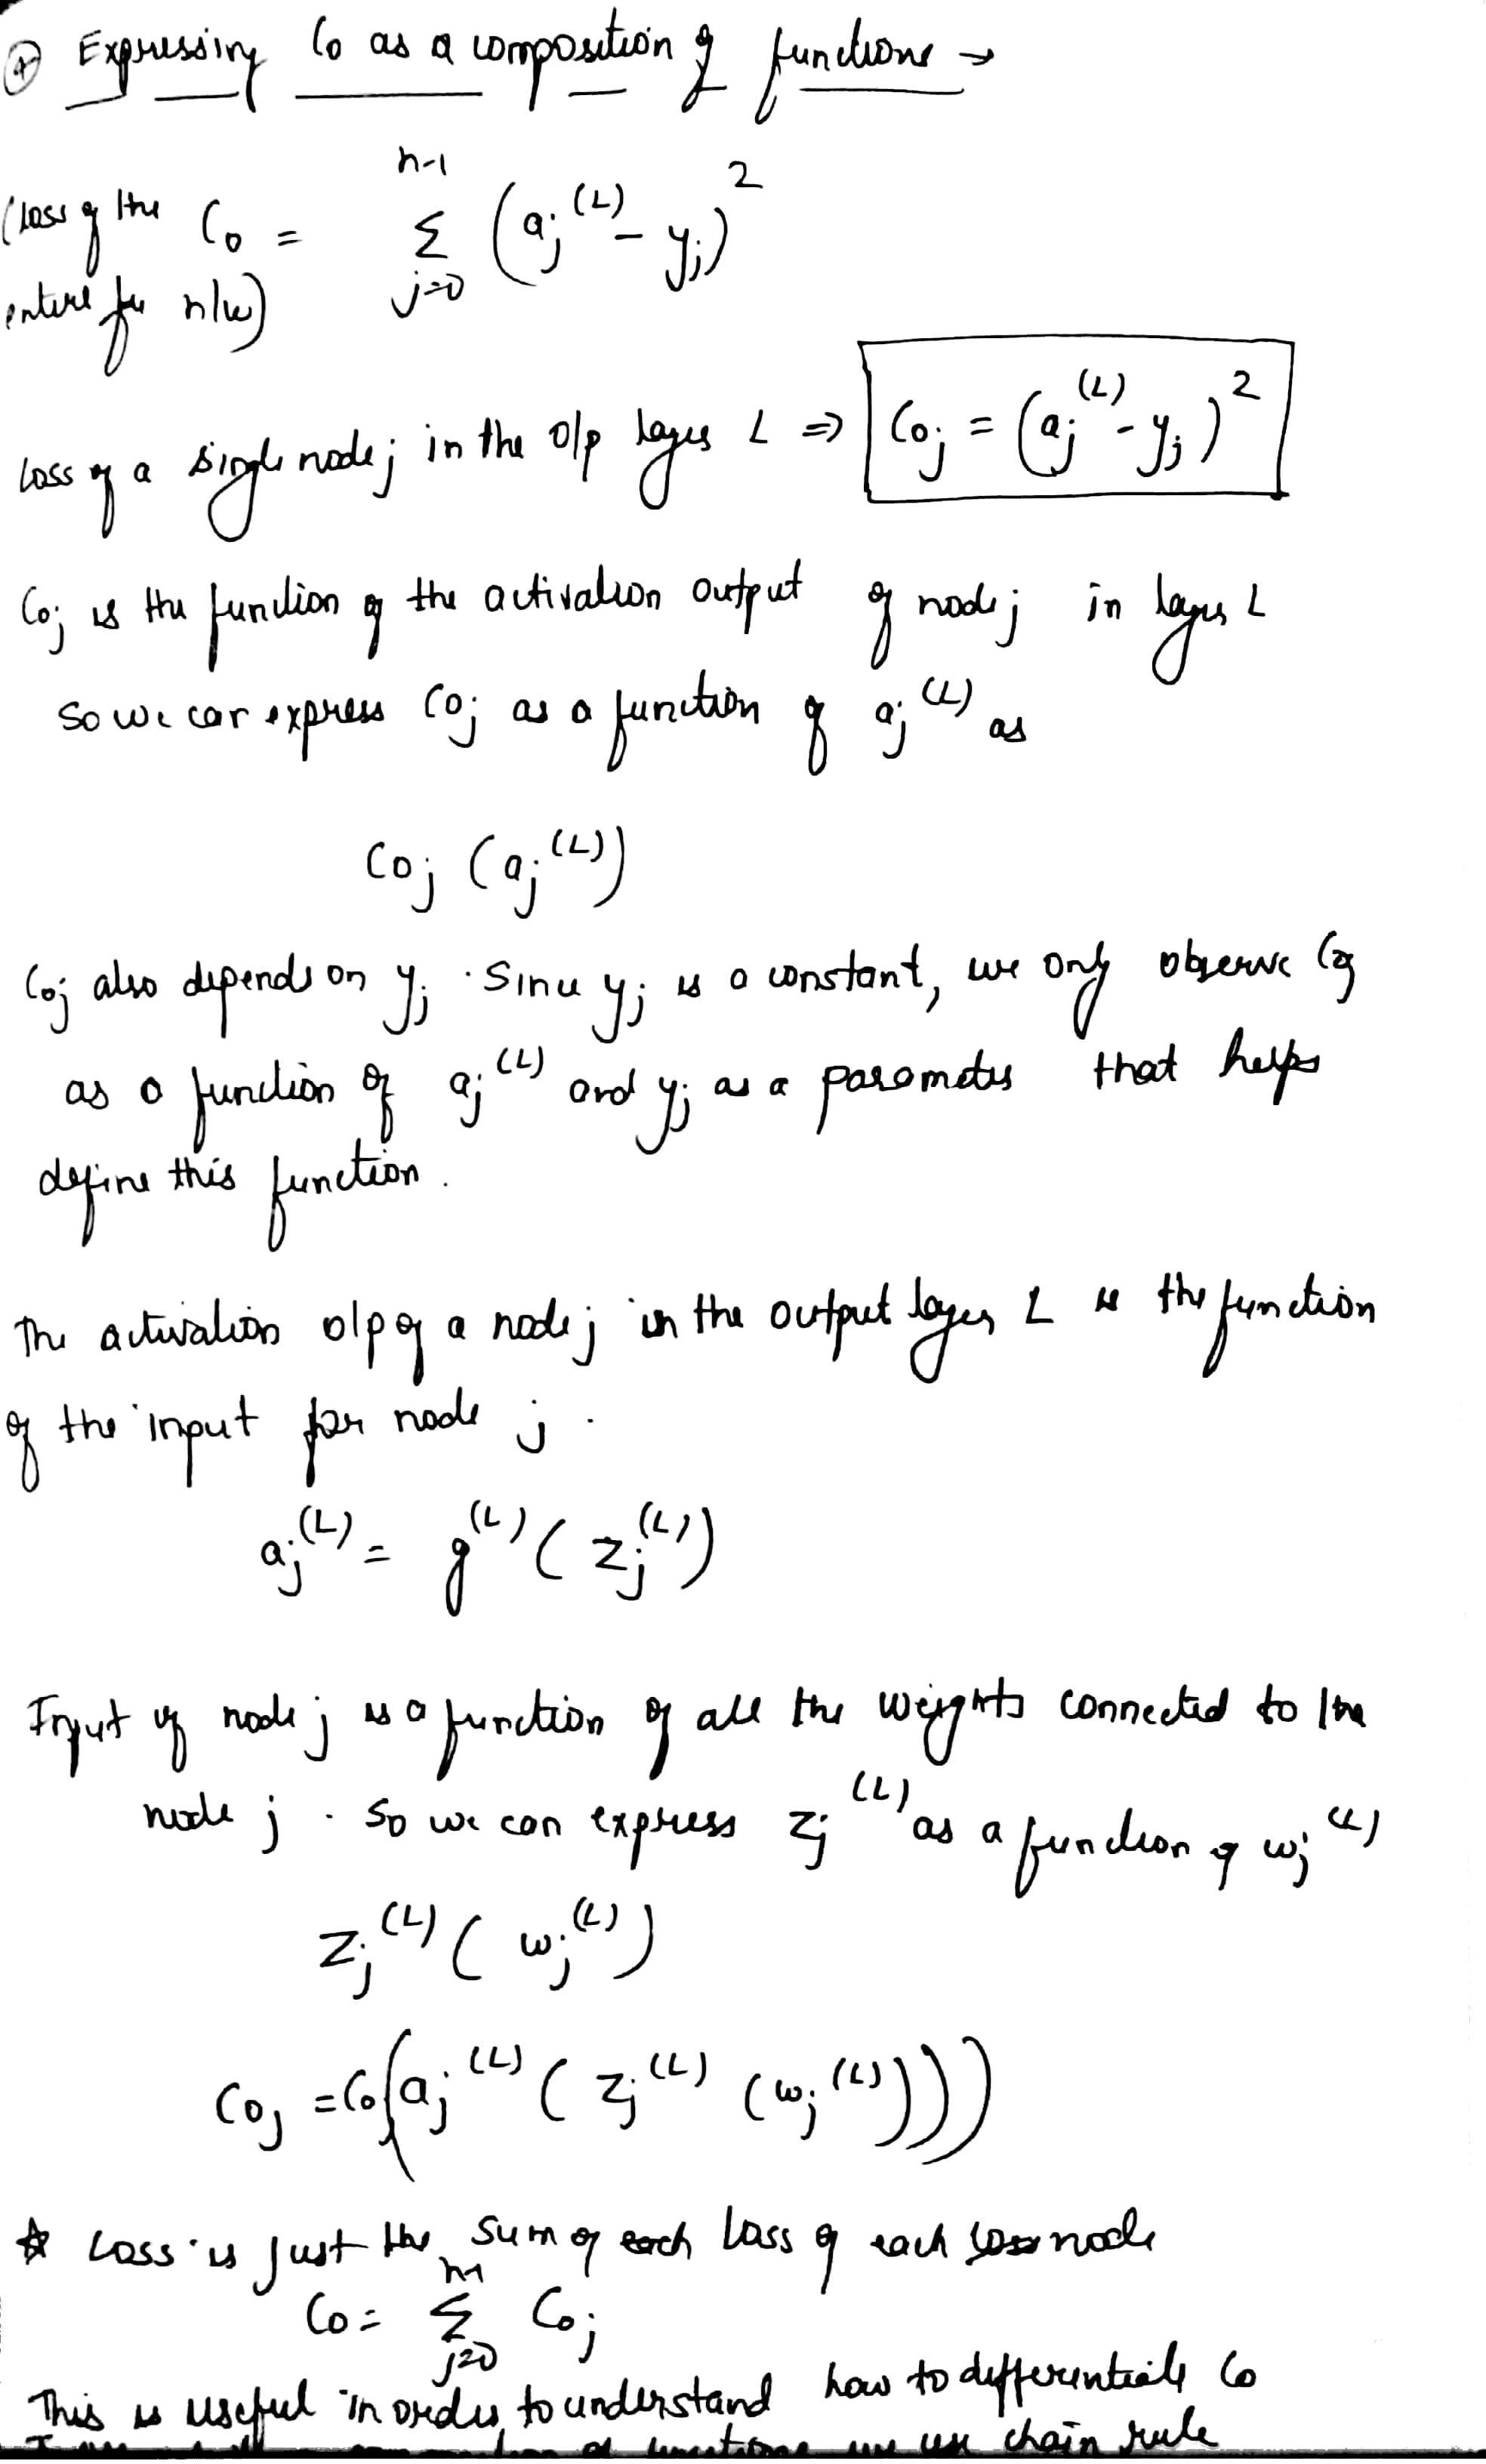 ④ Expressing C₀ as a composition of functions →
n-1
(Loss of the C₀ = Σ (aj^(L) - yj)²
entire n/w) j=0
Loss of a single node j in the o/p layer L ⇒ C₀j = (aj^(L) - yj)²
C₀j is the function of the activation output of node j in layer L
So we can express C₀j as a function of aj^(L) as
C₀j (aj^(L))
C₀j also depends on yj. Since yj is a constant, we only observe C₀j
as a function of aj^(L) and yj as a parameter that helps
define this function.
The activation o/p of a node j in the output layer L is the function
of the input for node j.
aj^(L) = g^(L) (zj^(L))
Input of node j is a function of all the weights connected to the
node j. So we can express zj^(L) as a function of wj^(L)
zj^(L) (wj^(L))
C₀j = C₀(aj^(L) (zj^(L) (wj^(L))))
☆ Loss is just the sum of each loss of each node
n-1
C₀ = Σ C₀j
j=0
This is useful in order to understand how to differentiate C₀
of functions we use chain rule